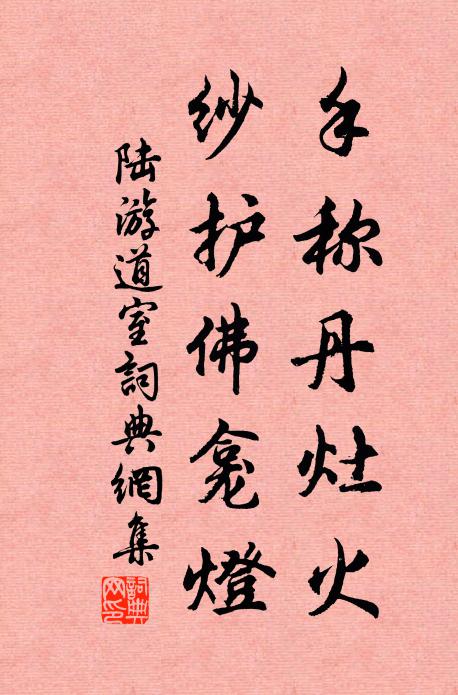 手称丹灶火
纱护佛龛燈
陆游道室詞典網集
詞典网印